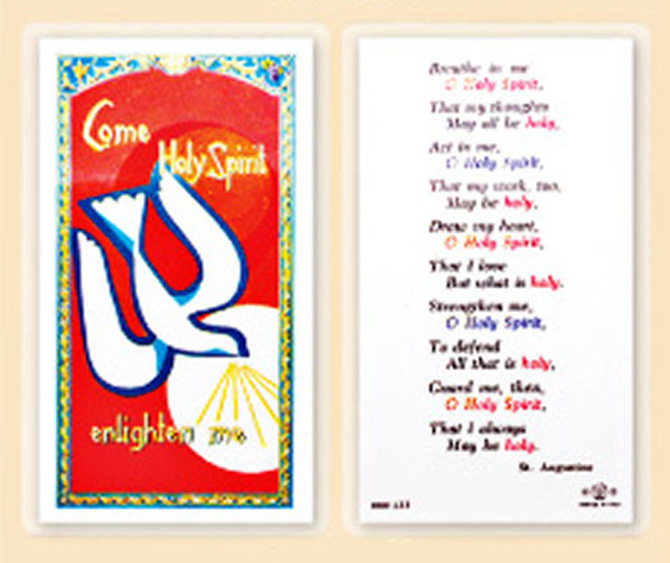 Come
Holy Spirit
enlighten me
Breathe in me
O Holy Spirit,
That my thoughts
May all be holy,
Act in me,
O Holy Spirit,
That my work, too,
May be holy,
Draw my heart,
O Holy Spirit,
That I love
But what is holy.
Strengthen me,
O Holy Spirit,
To defend
All that is holy,
Guard me, then,
O Holy Spirit,
That I always
May be holy.
St. Augustine